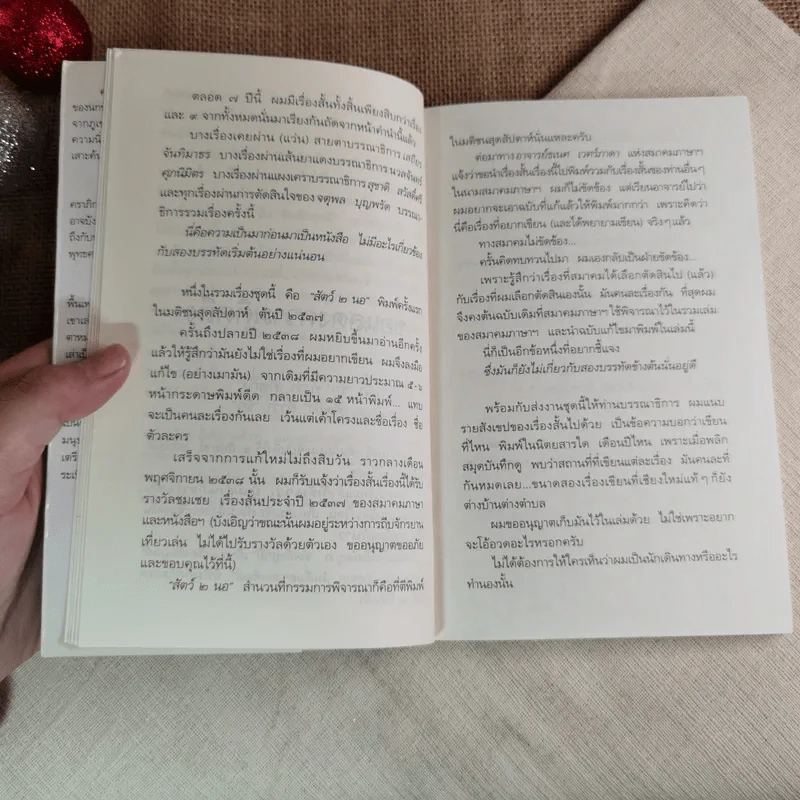 ตลอด ๗ ปีนี้ ผมมีเรื่องสั้นทั้งสิ้นเพียงสิบกว่าเรื่อง
และ ๙ จากทั้งหมดนั่นมาเรียงกันถัดจากหน้าคำนำนี้แล้ว
บางเรื่องเคยผ่าน (แว่น) สายตาบรรณาธิการ เสถียร
จันทิมาธร บางเรื่องผ่านเส้นยาแดงบรรณาธิการ นวลจันทร์
ศุภนิมิตร บางเรื่องผ่านแผงเคราบรรณาธิการ สุชาติ สวัสดิ์ศรี
และทุกเรื่องผ่านการตัดสินใจของ จตุพล บุญพรัด บรรณา-
ธิการรวมเรื่องครั้งนี้
นี่คือความเป็นมาก่อนมาเป็นหนังสือ ไม่มีอะไรเกี่ยวข้อง
กับสองบรรทัดเริ่มต้นอย่างแน่นอน
หนึ่งในรวมเรื่องชุดนี้ คือ “สัตว์ ๒ นอ” พิมพ์ครั้งแรก
ในมติชนสุดสัปดาห์ ต้นปี ๒๕๓๗
ครั้นถึงปลายปี ๒๕๓๘ ผมหยิบขึ้นมาอ่านอีกครั้ง
แล้วให้รู้สึกว่ามันยังไม่ใช่เรื่องที่ผมอยากเขียน ผมจึงลงมือ
แก้ไข (อย่างเมามัน) จากเดิมที่มีความยาวประมาณ ๕-๖
หน้ากระดาษพิมพ์ดีด กลายเป็น ๑๕ หน้าพิมพ์... แทบ
จะเป็นคนละเรื่องกันเลย เว้นแต่เค้าโครงและชื่อเรื่อง ชื่อ
ตัวละคร
เสร็จจากการแก้ใหม่ไม่ถึงสิบวัน ราวกลางเดือน
พฤศจิกายน ๒๕๓๘ นั้น ผมก็รับแจ้งว่าเรื่องสั้นเรื่องนี้ได้รับ
รางวัลชมเชย เรื่องสั้นประจำปี ๒๕๓๗ ของสมาคมภาษา
และหนังสือฯ (บังเอิญว่าขณะนั้นผมอยู่ระหว่างการถีบจักรยาน
เที่ยวเล่น ไม่ได้ไปรับรางวัลด้วยตัวเอง ขออนุญาตขออภัย
และขอบคุณไว้ที่นี้)
“สัตว์ ๒ นอ” สำนวนที่กรรมการพิจารณาก็คือที่ตีพิมพ์
ในมติชนสุดสัปดาห์นั่นแหละครับ
ต่อมาทาง อาจารย์ธเนศ เวศร์ภาดา แห่งสมาคมภาษาฯ
แจ้งว่าขอนำเรื่องสั้นเรื่องนี้ไปพิมพ์รวมกับเรื่องสั้นของท่านอื่นๆ
ในนามสมาคมภาษาฯ ผมก็ไม่ขัดข้อง แต่เรียนอาจารย์ไปว่า
ผมอยากจะเอาฉบับที่แก้แล้วให้พิมพ์มากกว่า เพราะคิดว่า
นี่คือเรื่องที่อยากเขียน (และได้พยายามเขียน) จริงๆ แล้ว
ทางสมาคมไม่ขัดข้อง...
ครั้นคิดทบทวนไปมา ผมเองกลับเป็นฝ่ายขัดข้อง...
เพราะรู้สึกว่าเรื่องที่สมาคมได้เลือกตัดสินไป (แล้ว)
กับเรื่องที่ผมเลือกตัดสินเองนั้น มันคนละเรื่องกัน ที่สุดผม
จึงคงต้นฉบับเดิมที่สมาคมภาษาฯ ใช้พิจารณาไว้ในรวมเล่ม
ของสมาคมภาษาฯ และนำฉบับแก้ไขมาพิมพ์ในเล่มนี้
นี่ก็เป็นอีกข้อหนึ่งที่อยากชี้แจง
ซึ่งมันก็ยังไม่เกี่ยวกับสองบรรทัดข้างต้นนั่นอยู่ดี
พร้อมกับส่งงานชุดนี้ให้ท่านบรรณาธิการ ผมแนบ
รายสังเขปของเรื่องสั้นไปด้วย เป็นข้อความบอกว่าเขียน
ที่ไหน พิมพ์ในนิตยสารใด เดือนปีไหน เพราะเมื่อพลิก
สมุดบันทึกดู พบว่าสถานที่ที่เขียนแต่ละเรื่อง มันคนละที่
กันหมดเลย...ขนาดสองเรื่องเขียนที่เชียงใหม่แท้ ๆ ก็ยัง
ต่างบ้านต่างตำบล
ผมขออนุญาตเก็บมันไว้ในเล่มด้วย ไม่ใช่เพราะอยาก
จะโอ้อวดอะไรหรอกครับ
ไม่ได้ต้องการให้ใครเห็นว่าผมเป็นนักเดินทางหรืออะไร
ทำนองนั้น